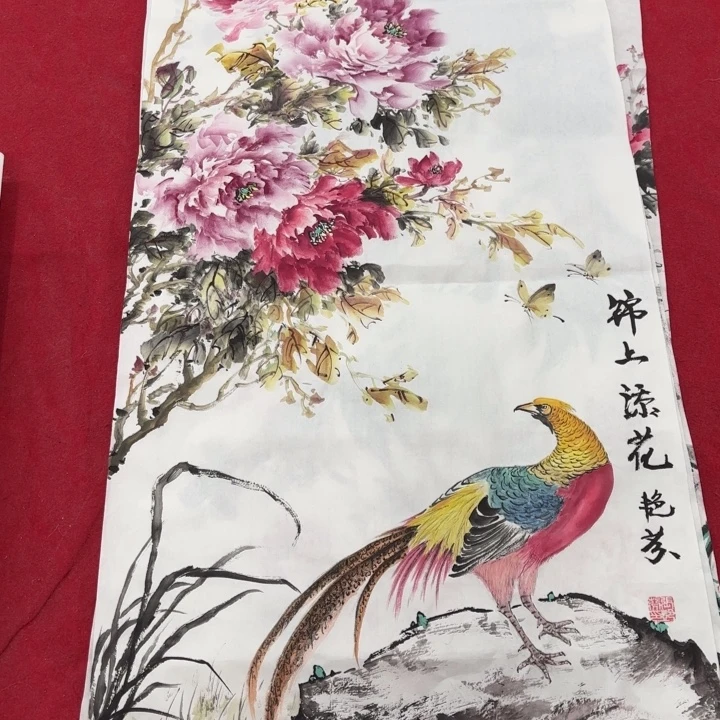 锦上添花
艳芬